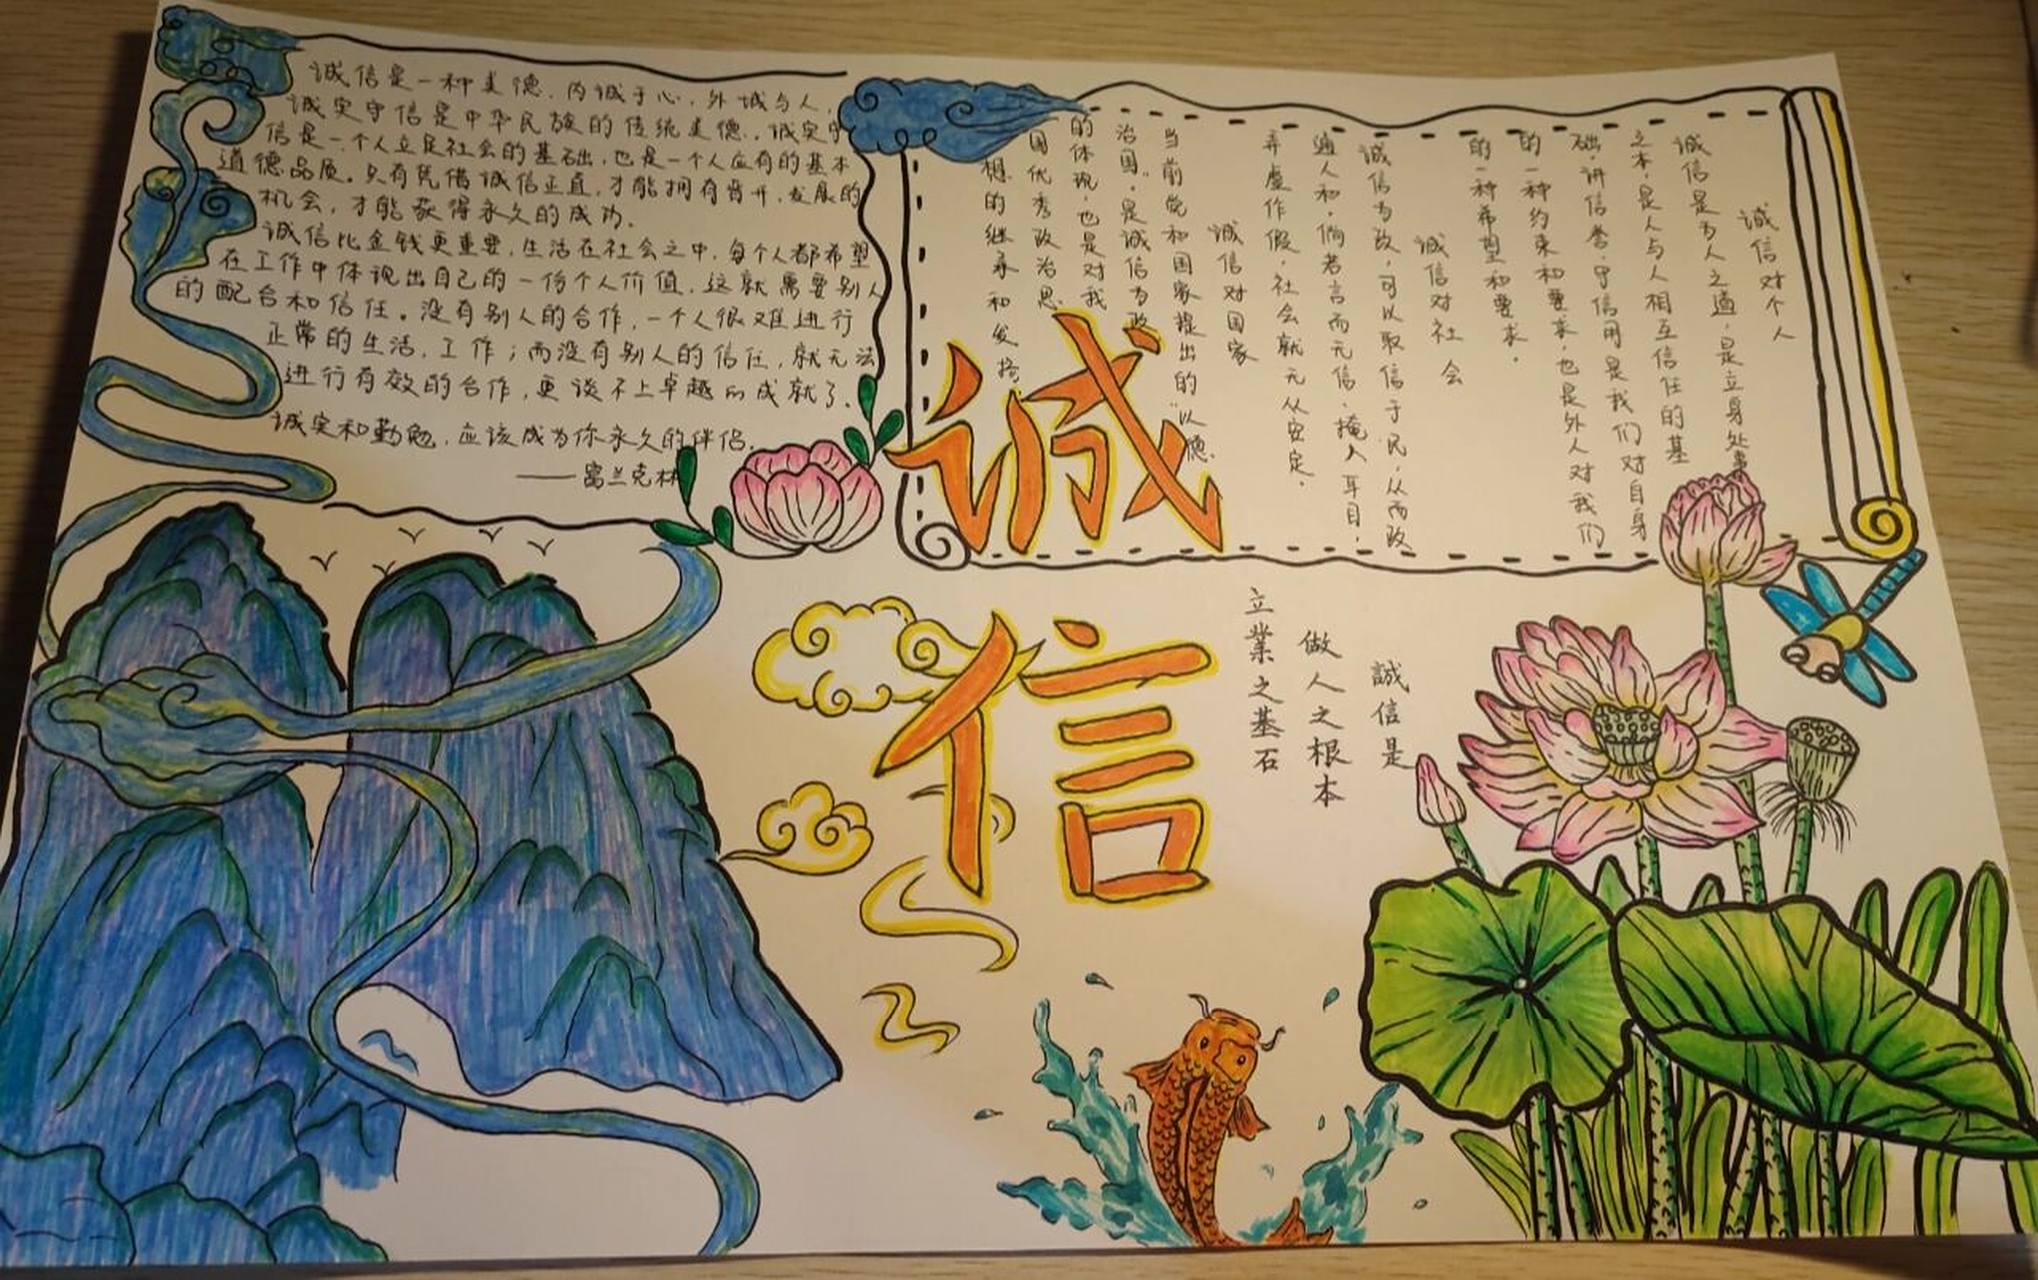 诚信是一种美德，内诚于心，外诚与人，
诚实守信是中华民族的传统美德，诚实守
信是一个人立足社会的基础，也是一个人应有的基本
道德品质。只有凭借诚信正直，才能拥有晋升，发展的
机会，才能获得永久的成功。
诚信比金钱更重要，生活在社会之中，每个人都希望
在工作中体现出自己的一份个人价值，这就需要别人
的配合和信任。没有别人的合作，一个人很难进行
正常的生活，工作；而没有别人的信任，就无法
进行有效的合作，更谈不上卓越的成就了。
诚实和勤勉，应该成为你永久的伴侣。
——富兰克林
诚信对个人
诚信是为人之道，是立身处事
之本，是人与人相互信任的基
础，讲信誉，守信用是我们对自身
的一种约束和要求，也是外人对我们
的一种希望和要求。
诚信对社会
诚信为政，可以取信于民，从而政
通人和，倘若言而无信，掩人耳目，
弄虚作假，社会就无从安定。
诚信对国家
当前党和国家提出的“以德
治国”，是诚信为政
的体现，也是对我
国优秀政治思
想的继承和发扬
诚
信
誠信是
做人之根本
立業之基石